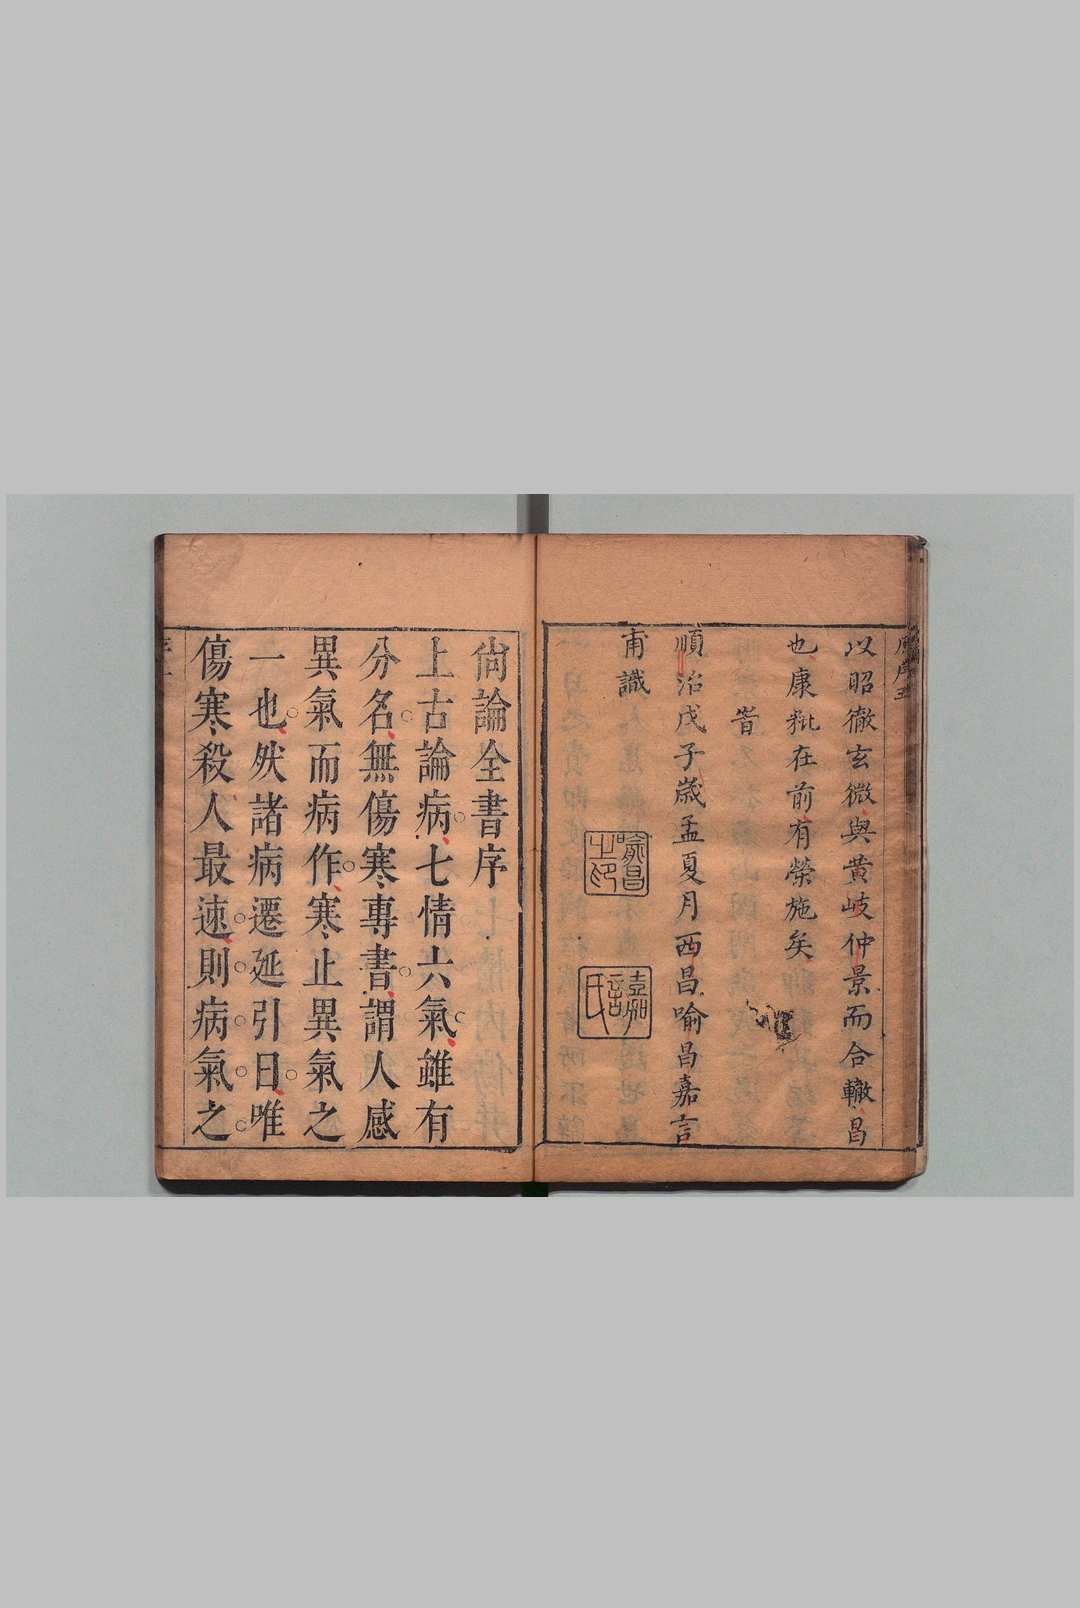 以昭徹玄微與黄岐仲景而合轍昌
也康粃在前有榮施矣
旹
順治戊子歳孟夏月西昌喻昌嘉言
甫識
喻昌之印
嘉言氏
尚論全書序
上古論病七情六氣雖有
分名無傷寒專書謂人感
異氣而病作寒止異氣之
一也然諸病遷延引日唯
傷寒殺人最速則病氣之